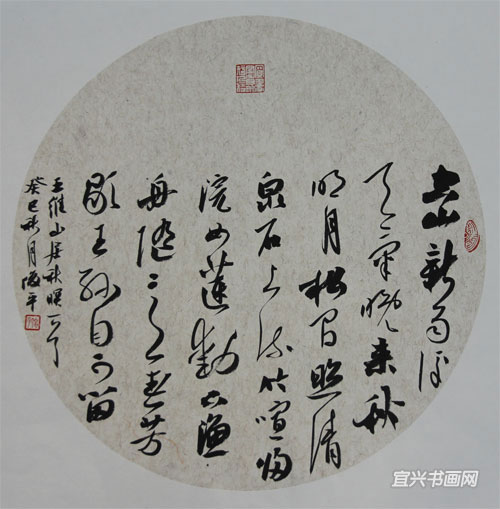 空山新雨後
天氣晚来秋
明月松间照清
泉石上流竹喧归
浣女蓮動下漁
舟随意春芳
歇王孙自可留
王维山居秋暝一首
癸巳秋月平
宜兴书画网